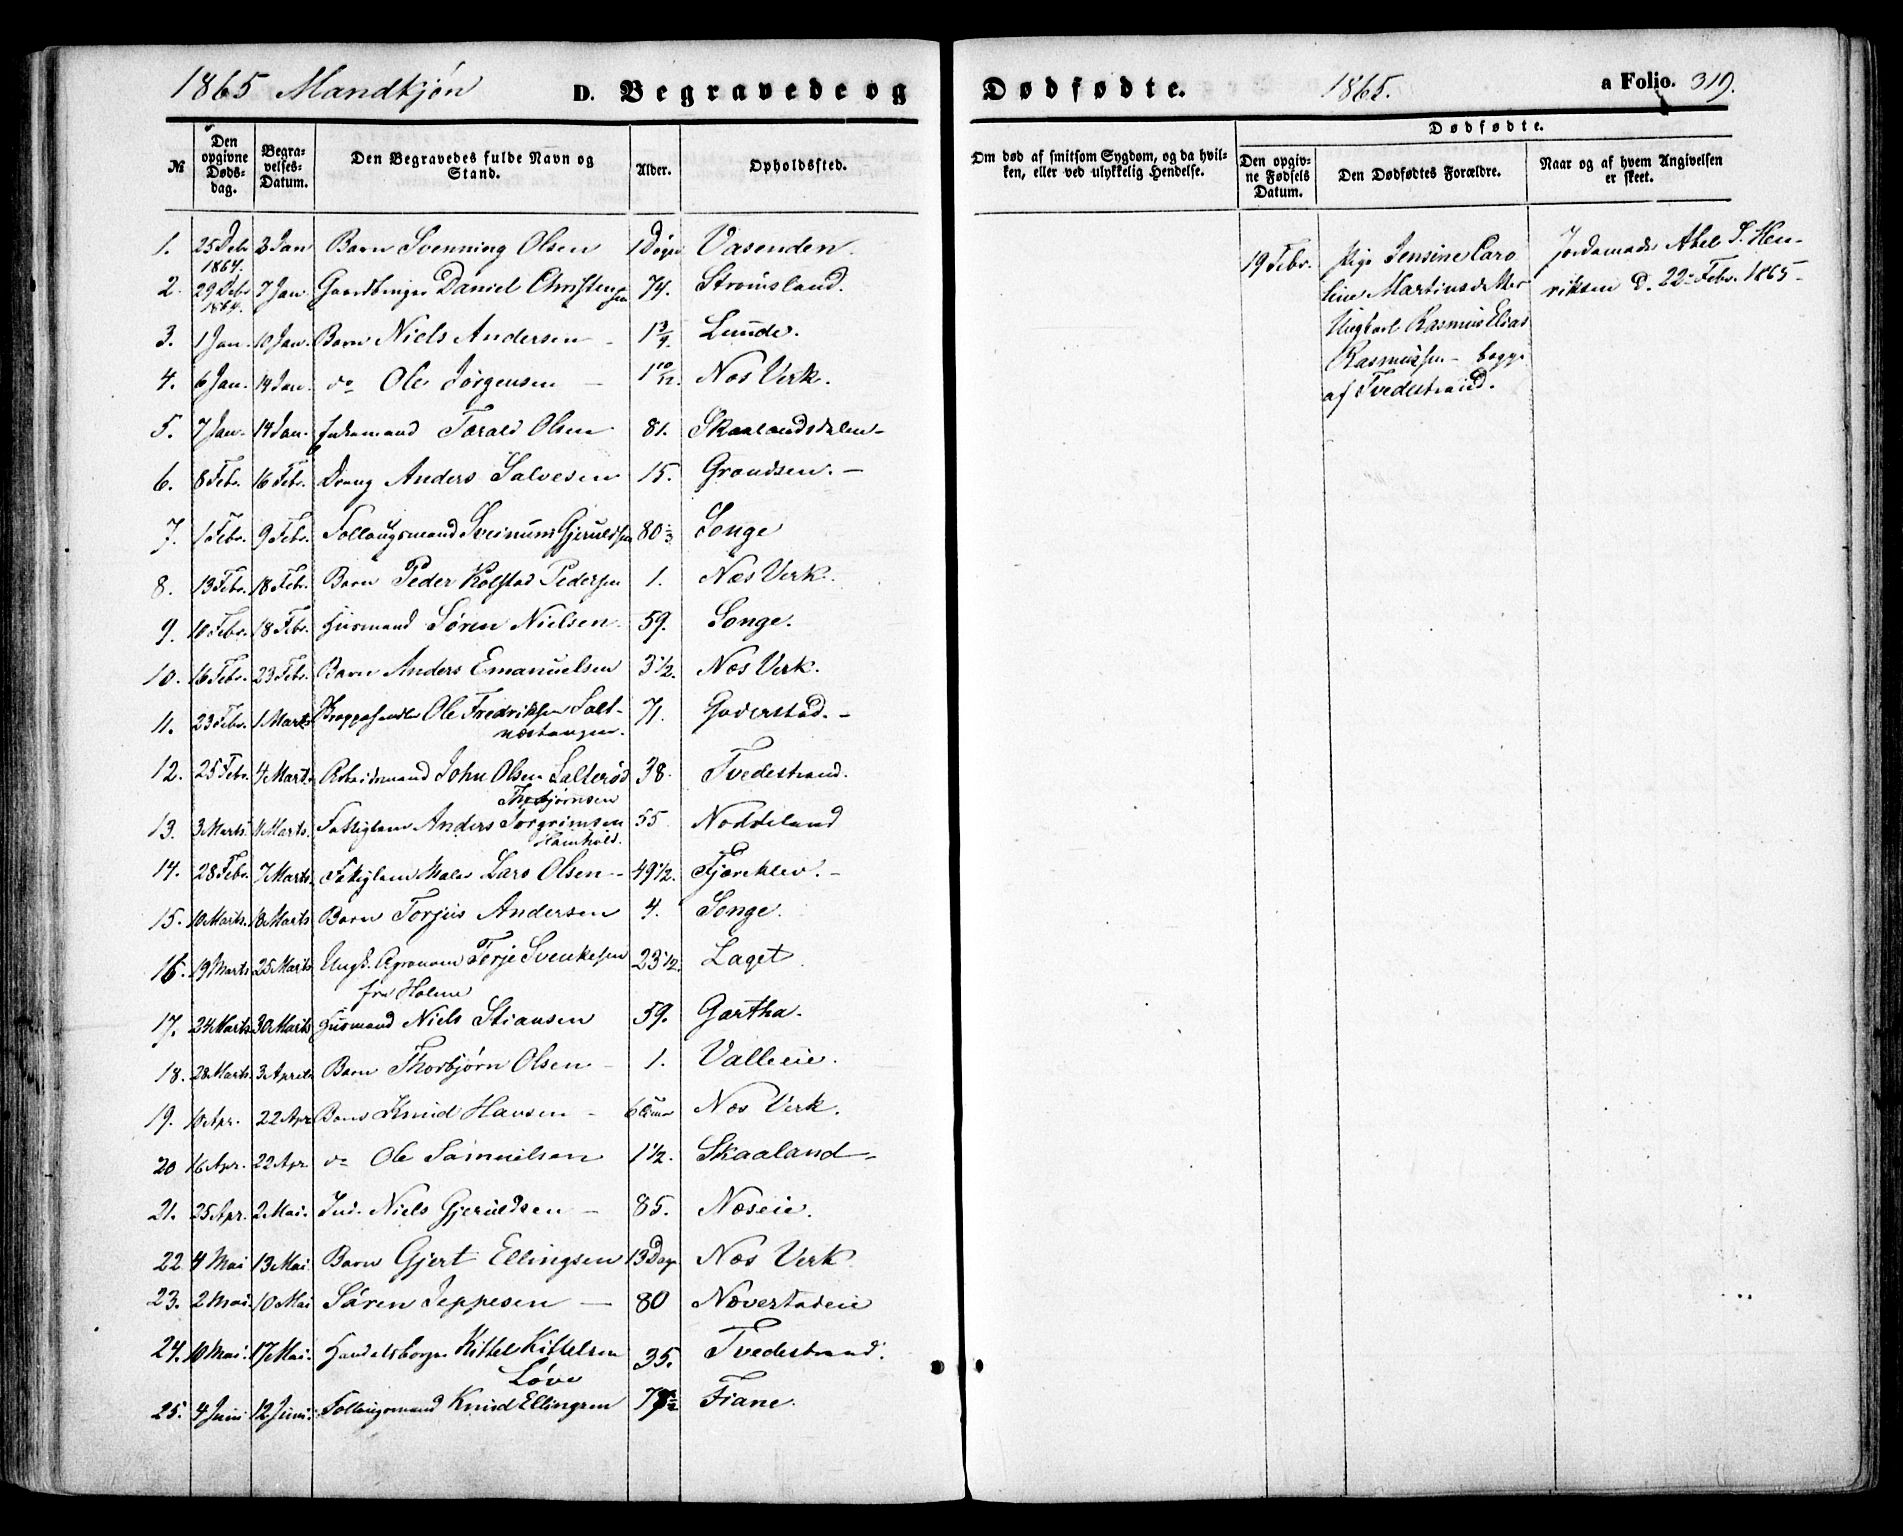 1865 Mandkjøn D. Begravede og Dødfødte. 1865. a Folio. 319.
№ Den opgivne Dødsdag. Begravelses-Datum. Den Begravedes fulde Navn og Stand. Alder. Opholdssted. Om død af smitsom Sygdom, og da hvilken, eller ved ulykkelig Hendelse. Dødfødte. Den opgivne Fødsels Datum. Den Dødfødtes Forældre. Naar og af hvem Angivelsen er skeet.
1. 25 Debr 1864. 2 Jan Barn Svenning Olsen 1 Døgn Vasenden.
2. 29 Debr 1864. 7 Jan Gaardbruger Daniel Christensen 74. Strømsland.
3. 1 Jan. 10 Jan. Barn Niels Andersen - Lunde.
4. 6 Jan. 14 Jan. do Ole Jørgensen - 1 10/12. Næs Verk.
5. 7 Jan. 14 Jan. Tarald Olsen 81. Skaalandsdalen -
6. 8 Febr. 16 Febr. Dreng Anders Salvesen 15. Grændsen. -
7. 1 Febr. 9 Febr. Follaugsmand Sveinum Gjeruldsen 80 Songe
8. 13 Febr. 18 Febr. Barn Peder Kolstad Pedersen 1. Næs Verk.
9. 10 Febr. 18 Febr. Husmand Søren Nielsen. 59. Songe.
10. 16 Febr. 23 Febr. Barn Anders Emanuelsen 3 1/2. Næs Verk.
11. 23 Febr. 1 Marts Ole Fredriksen Saltnæstangen. 71. Goderstad. -
12. 25 Febr. 4 Marts Arbeidsmand John Olsen Salterød 38. Tvedestrand.
13. 3 Marts 11 Marts. Fattiglem Anders Torgrimsen Thorbjørnsen Hamhold. 55 Noddeland
14. 28 Febr. 7 Marts. Fattiglem Maler Lars Olsen - 49 1/2. Fjæreklev. -
15. 10 Marts. 18 Marts Barn Torjus Andersen 4. Songe.
16. 19 Marts 25 Marts Ungk. Agronom Terje Svenkesen fra Holme 23 1/2. Laget
17. 24 Marts 30 Marts Husmand Niels Stiansen 59. Gartha.
18. 28 Marts. 3 April Barn Thorbjørn Olsen - 1. Valleeie.
19. 10 Apr. 22 Apr Barn Knud Hansen - Næs Verk.
20 16 Apr. 22 Apr do Ole Samuelsen 1 1/2. Skaaland -
21. 25 Apr. 2 Mai. Ind. Niels Gjeruldsen - 85. Næseie.
22 4 Mai 13 Mai. Barn Gjert Ellingsen 13 Dage Næs Verk
23. 2 Mai. 10 Mai Søren Jeppesen - 80 Næverstadeie
24. 10 Mai. 17 Mai. Handelsborger Kittel Kittelsen Løve 35. Tvedestrand.
25. 4 Juni 12 Juni. Follaugsmand Knud Ellingsen Fiane.
19 Febr. Pige Jensine Caro
line Martinsdatter
Ungkarl Rasmus Elias
Rasmussen - begge
af Tvedestrand.
Jordemoder Abel S. Hen-
riksen d. 22 Febr. 1865 -